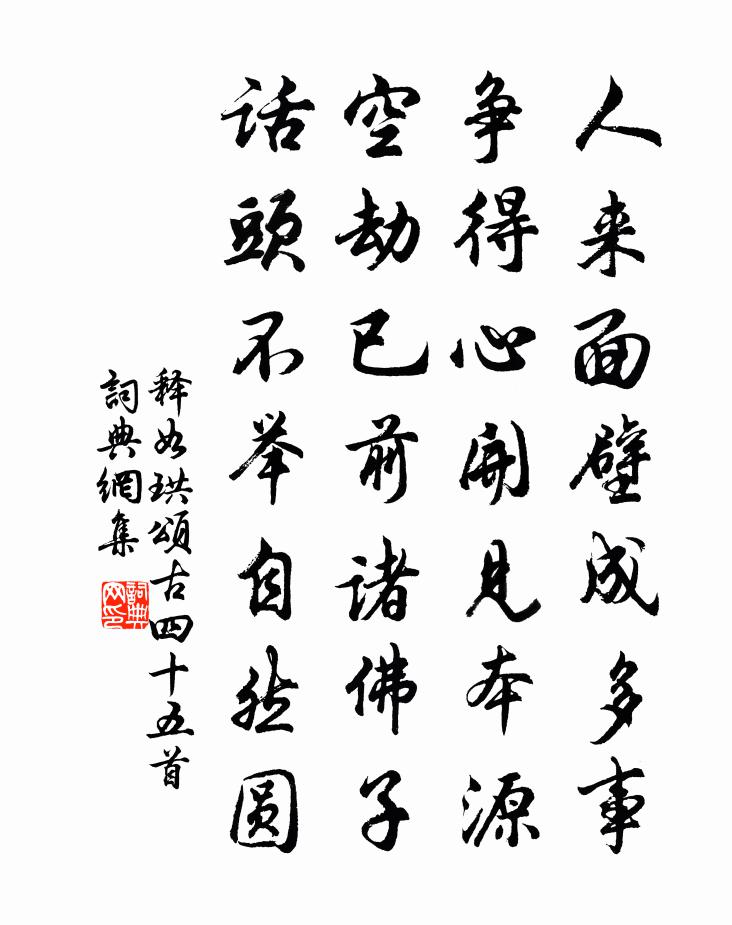 人来面壁成多事
争得心開見本源
空劫已前諸佛子
话頭不举自然圆
释如珙頌古四十五首
詞典網集
詞典网印